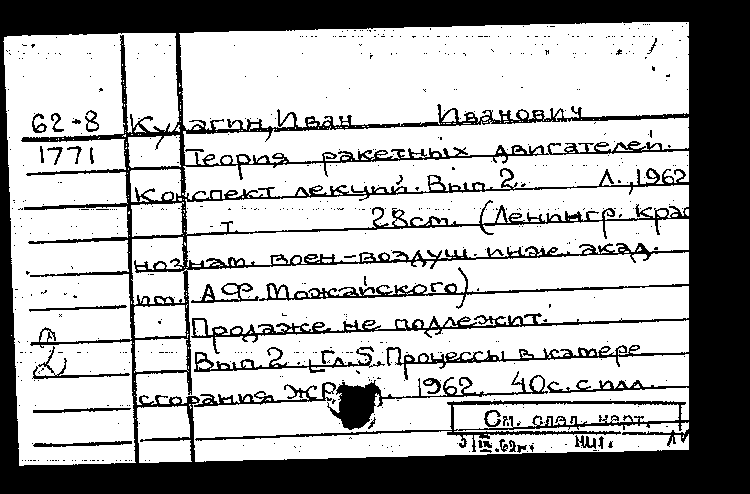 62-8 Кулагин, Иван Иванович
1771 Теория ракетных двигателей.
Конспект лекций. Вып. 2. Л., 1962
т. 28 см. (Ленингр. крас
нознам. воен.-воздуш. инж. акад.
им. А.Ф. Можайского).
Продаже не подлежит.
Вып. 2. Гл. 5. Процессы в камере
сгорания 1962. 40 с. с илл.
См. след. карт.